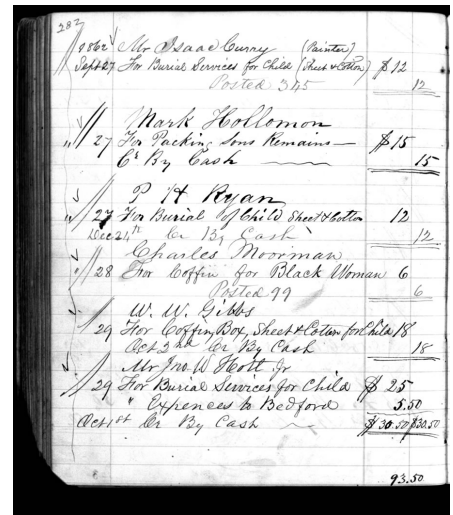 282
1862 Mr Isaac Curry (Painter)
Sept 27 For Burial Services for Child (Sheet & Cotton) $12
Posted 345 12
Mark Hollomon
" 27 For Packing Sons Remains— $15
Cr By Cash 15
P H Ryan
" 27 For Burial of Child Sheet & Cotton 12
Dec 24th Cr By Cash 12
Charles Moorman
" 28 For Coffin for Black Woman 6
Posted 99 6
W. W. Gibbs
29 For Coffin, Box, Sheet & Cotton for Child 18
Oct 2nd Cr By Cash 18
Mr Jno W Hott Jr
29 For Burial Services for Child $25
" Expences to Bedford 5.50
Oct 1st Cr By Cash $30.50 $30.50
93.50